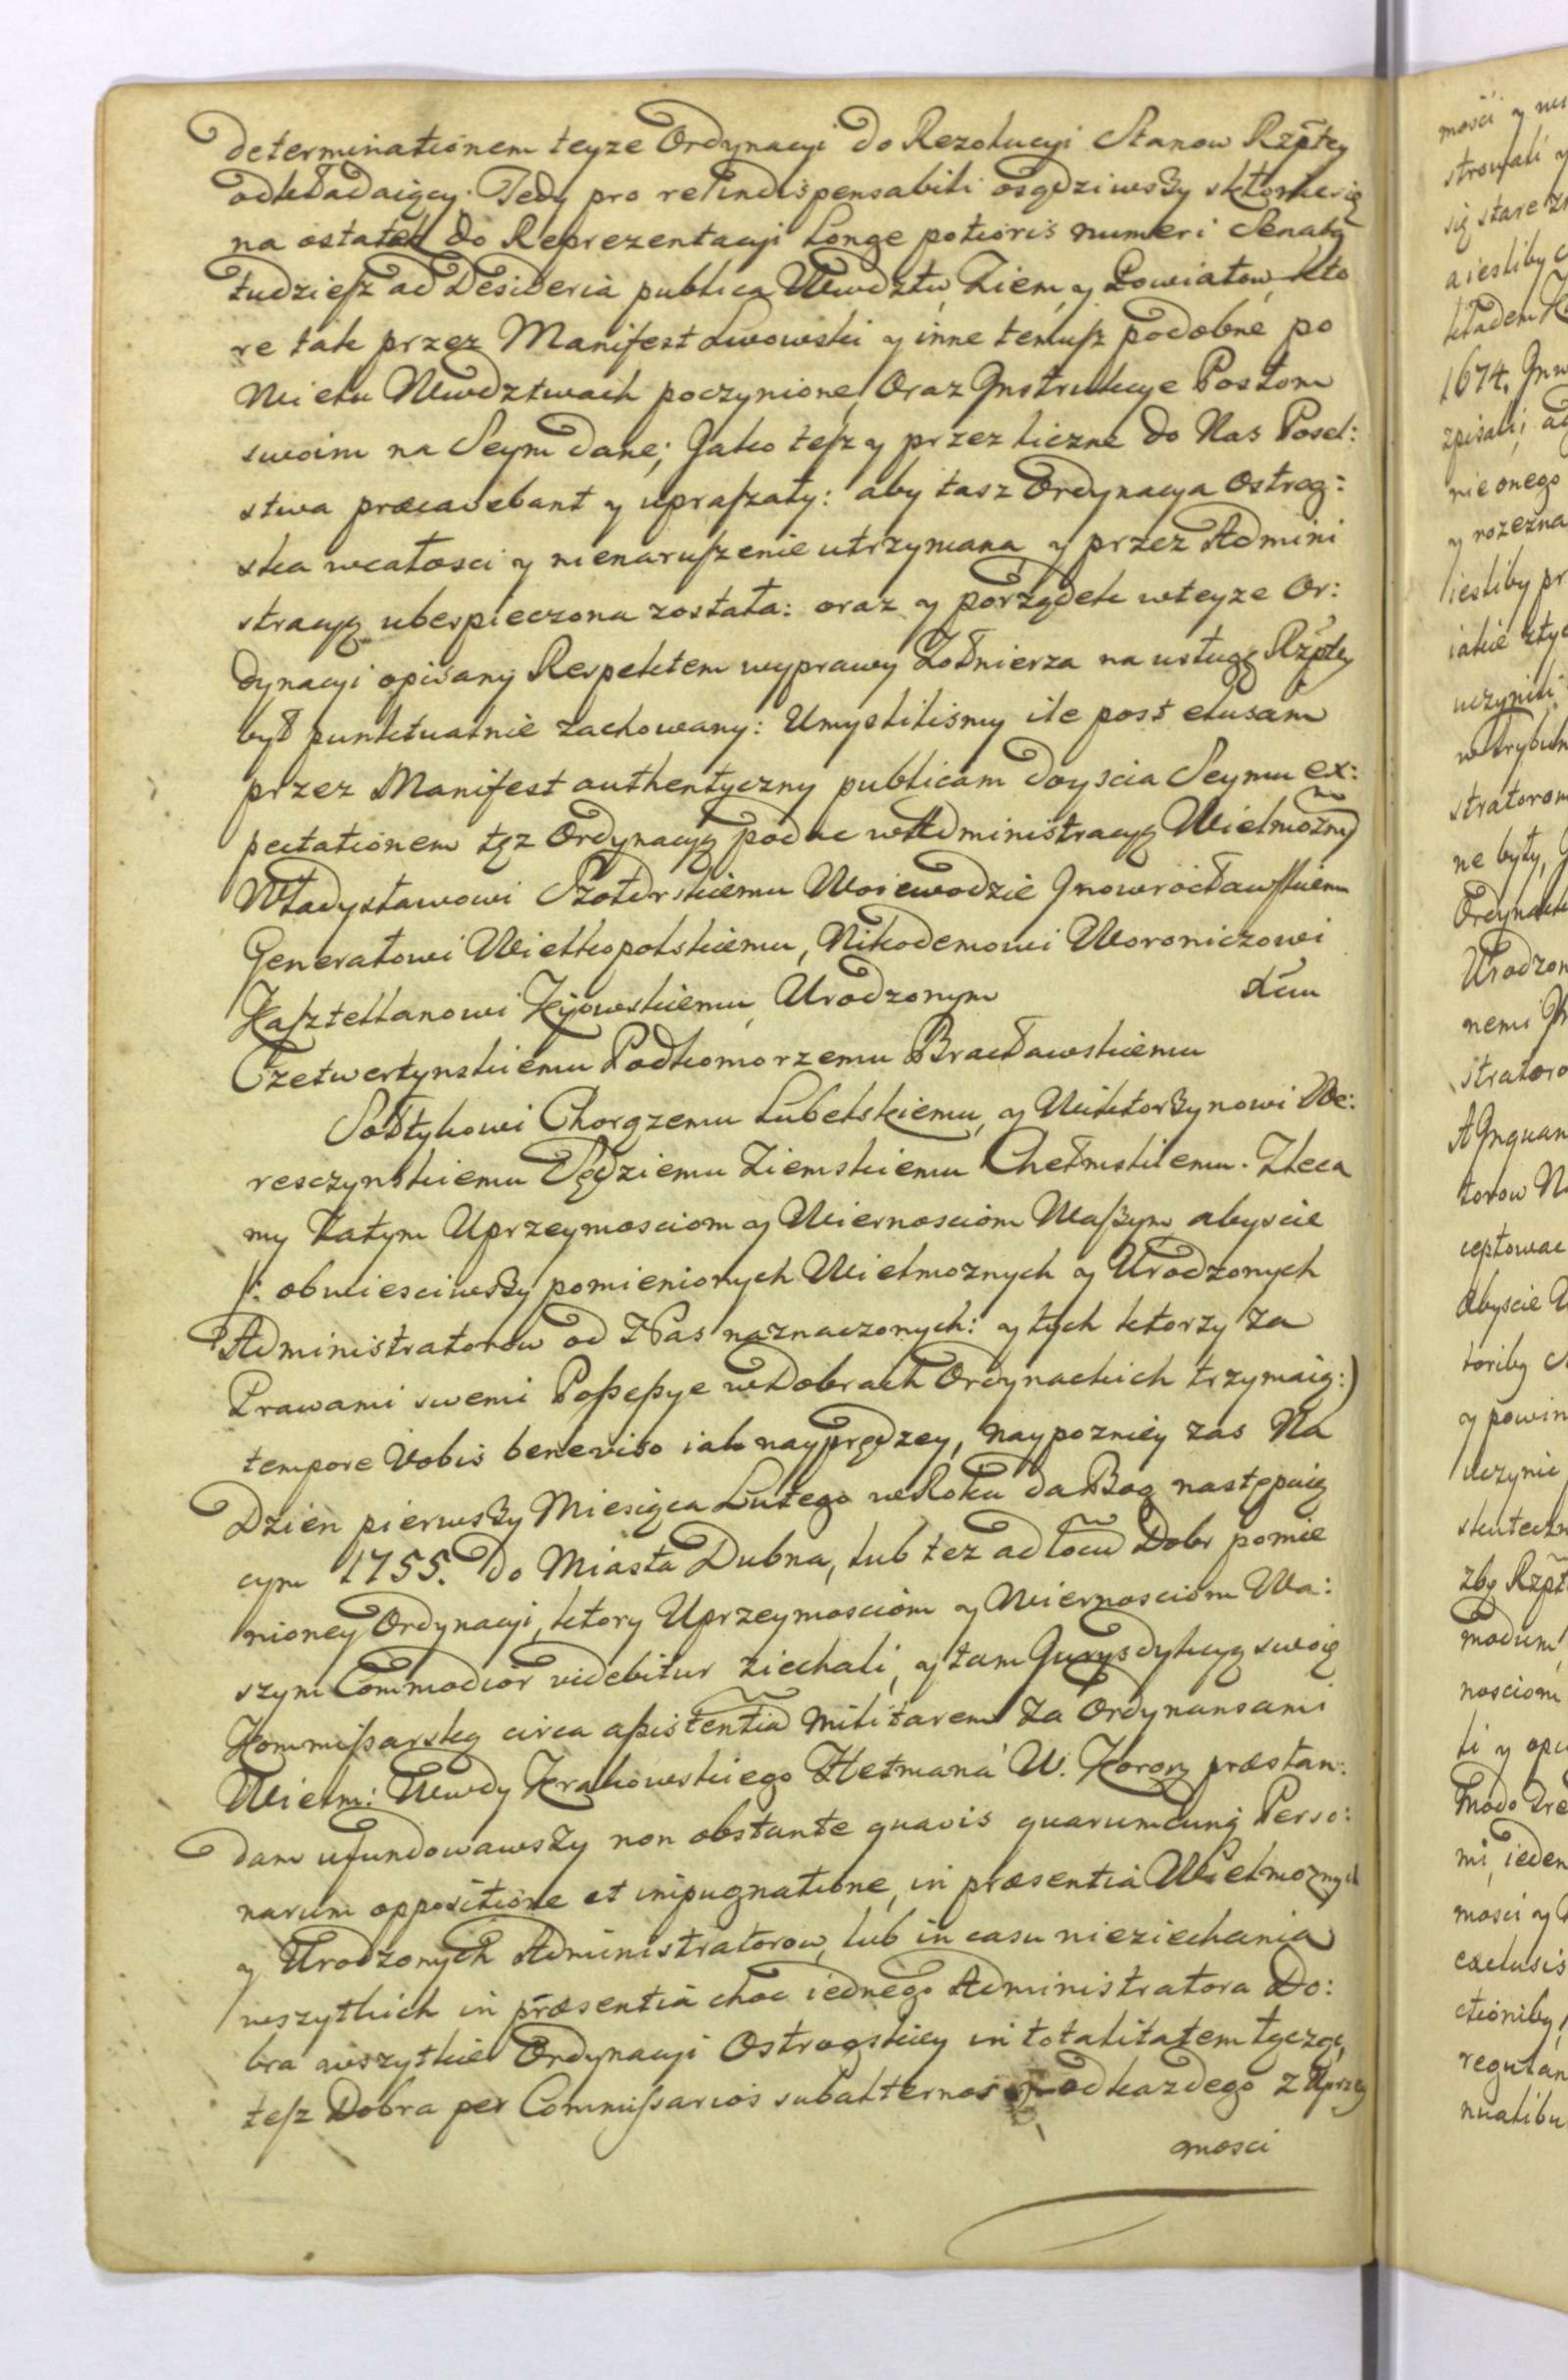 determinationem teyze Ordynacyi do Rezolucyi Stanow Rzpltey
odkładaiącey. Tedy pro re indispensabili osądziwszy skłoniwszy
na ostatek do Reprezentacyi Longe potioris numeri Senatu
tudzieſz ad Desideria publica Wwdztw, Ziem, y Powiatow, kto
re tak przez Manifest Lwowski y inne temuſz podobne po
Wielu Wwdztwach poczynione, Oraz Jnstrukcye Posłom
swoim na Seym dane; Jako teſz y przez liczne do Nas Posel:
stwa præcavebant y upraſzały: aby taſz Ordynacya Ostrog:
ska wcałosci y nienaruſzenie utrzymana y przez Admini
stracyą ubespieczona została: oraz y porządek wteyze Or:
dynacyi opisany Respektem wyprawy Żołnierza na usługę Rzpltey
był punktualnie zachowany: Umyslilismy ile post elusam
przez Manifest authentyczny publicam doyscia Seymu ex:
pectationem tęz Ordynacyą podac w Administracyą Wielmożny
Władysławowi Szołdrskiemu Woiewodzie Jnowrocławſkiemu
Generałowi Wielkopolskiemu, Nikodemowi Woroniczowi
Kaſztellanowi Kijowskiemu, Urodzonym Xciu
Czetwertynskiemu Podkomorzemu Bracławskiemu
Sołtykowi Chorązemu Lubelskiemu, y Wiktorzynowi We:
resczynskiemu Sędziemu Ziemskiemu Chełmskiemu. Zleca
my Zatym Uprzeymosciom y Wiernosciom Waſzym, abyscie
/: obwiesciwszy pomienionych Wielmoznych y Urodzonych
Administratorow od Nas naznaczonych: y tych ktorzy za
Prawami swemi Poſseſsye w Dobrach Ordynackich trzymaią:)
tempore Vobis beneviso iak nayprędzey, naypozniey zas Na
Dzien pierwszy Miesiąca Lutego w Roku da Bog następuią
cym 1755. do Miasta Dubna, lub tez ad locū Dobr pomie
nioney Ordynacyi, ktory Uprzeymosciom y Wiernosciom Wa:
szym Commodior videbitur ziechali, y tam Jurysdykcyą swoię
Kommiſsarską circa aſsistentiā Militarem za Ordynansami
Wielm: Wwdy Krakowskiego Hetmana W. Korony præstan:
dam ufundowawszy non obstante quavis quarumcunq Perso:
narum oppositione et impugnatione, in præsentia Wielmoznych
y Urodzonych Administratorow, lub in casu nieziechania
wszytkich in præsentia choc iednego Administratora Do:
bra wszytkie Ordynacyi Ostrogskiey in totalitatem tyczące,
teſz Dobra per Commiſsarios subalternos od kazdego z Uprzey
mosci